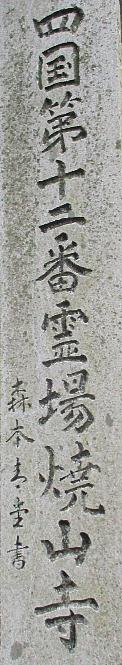 四国第十二番霊場焼山寺
森本青堂書